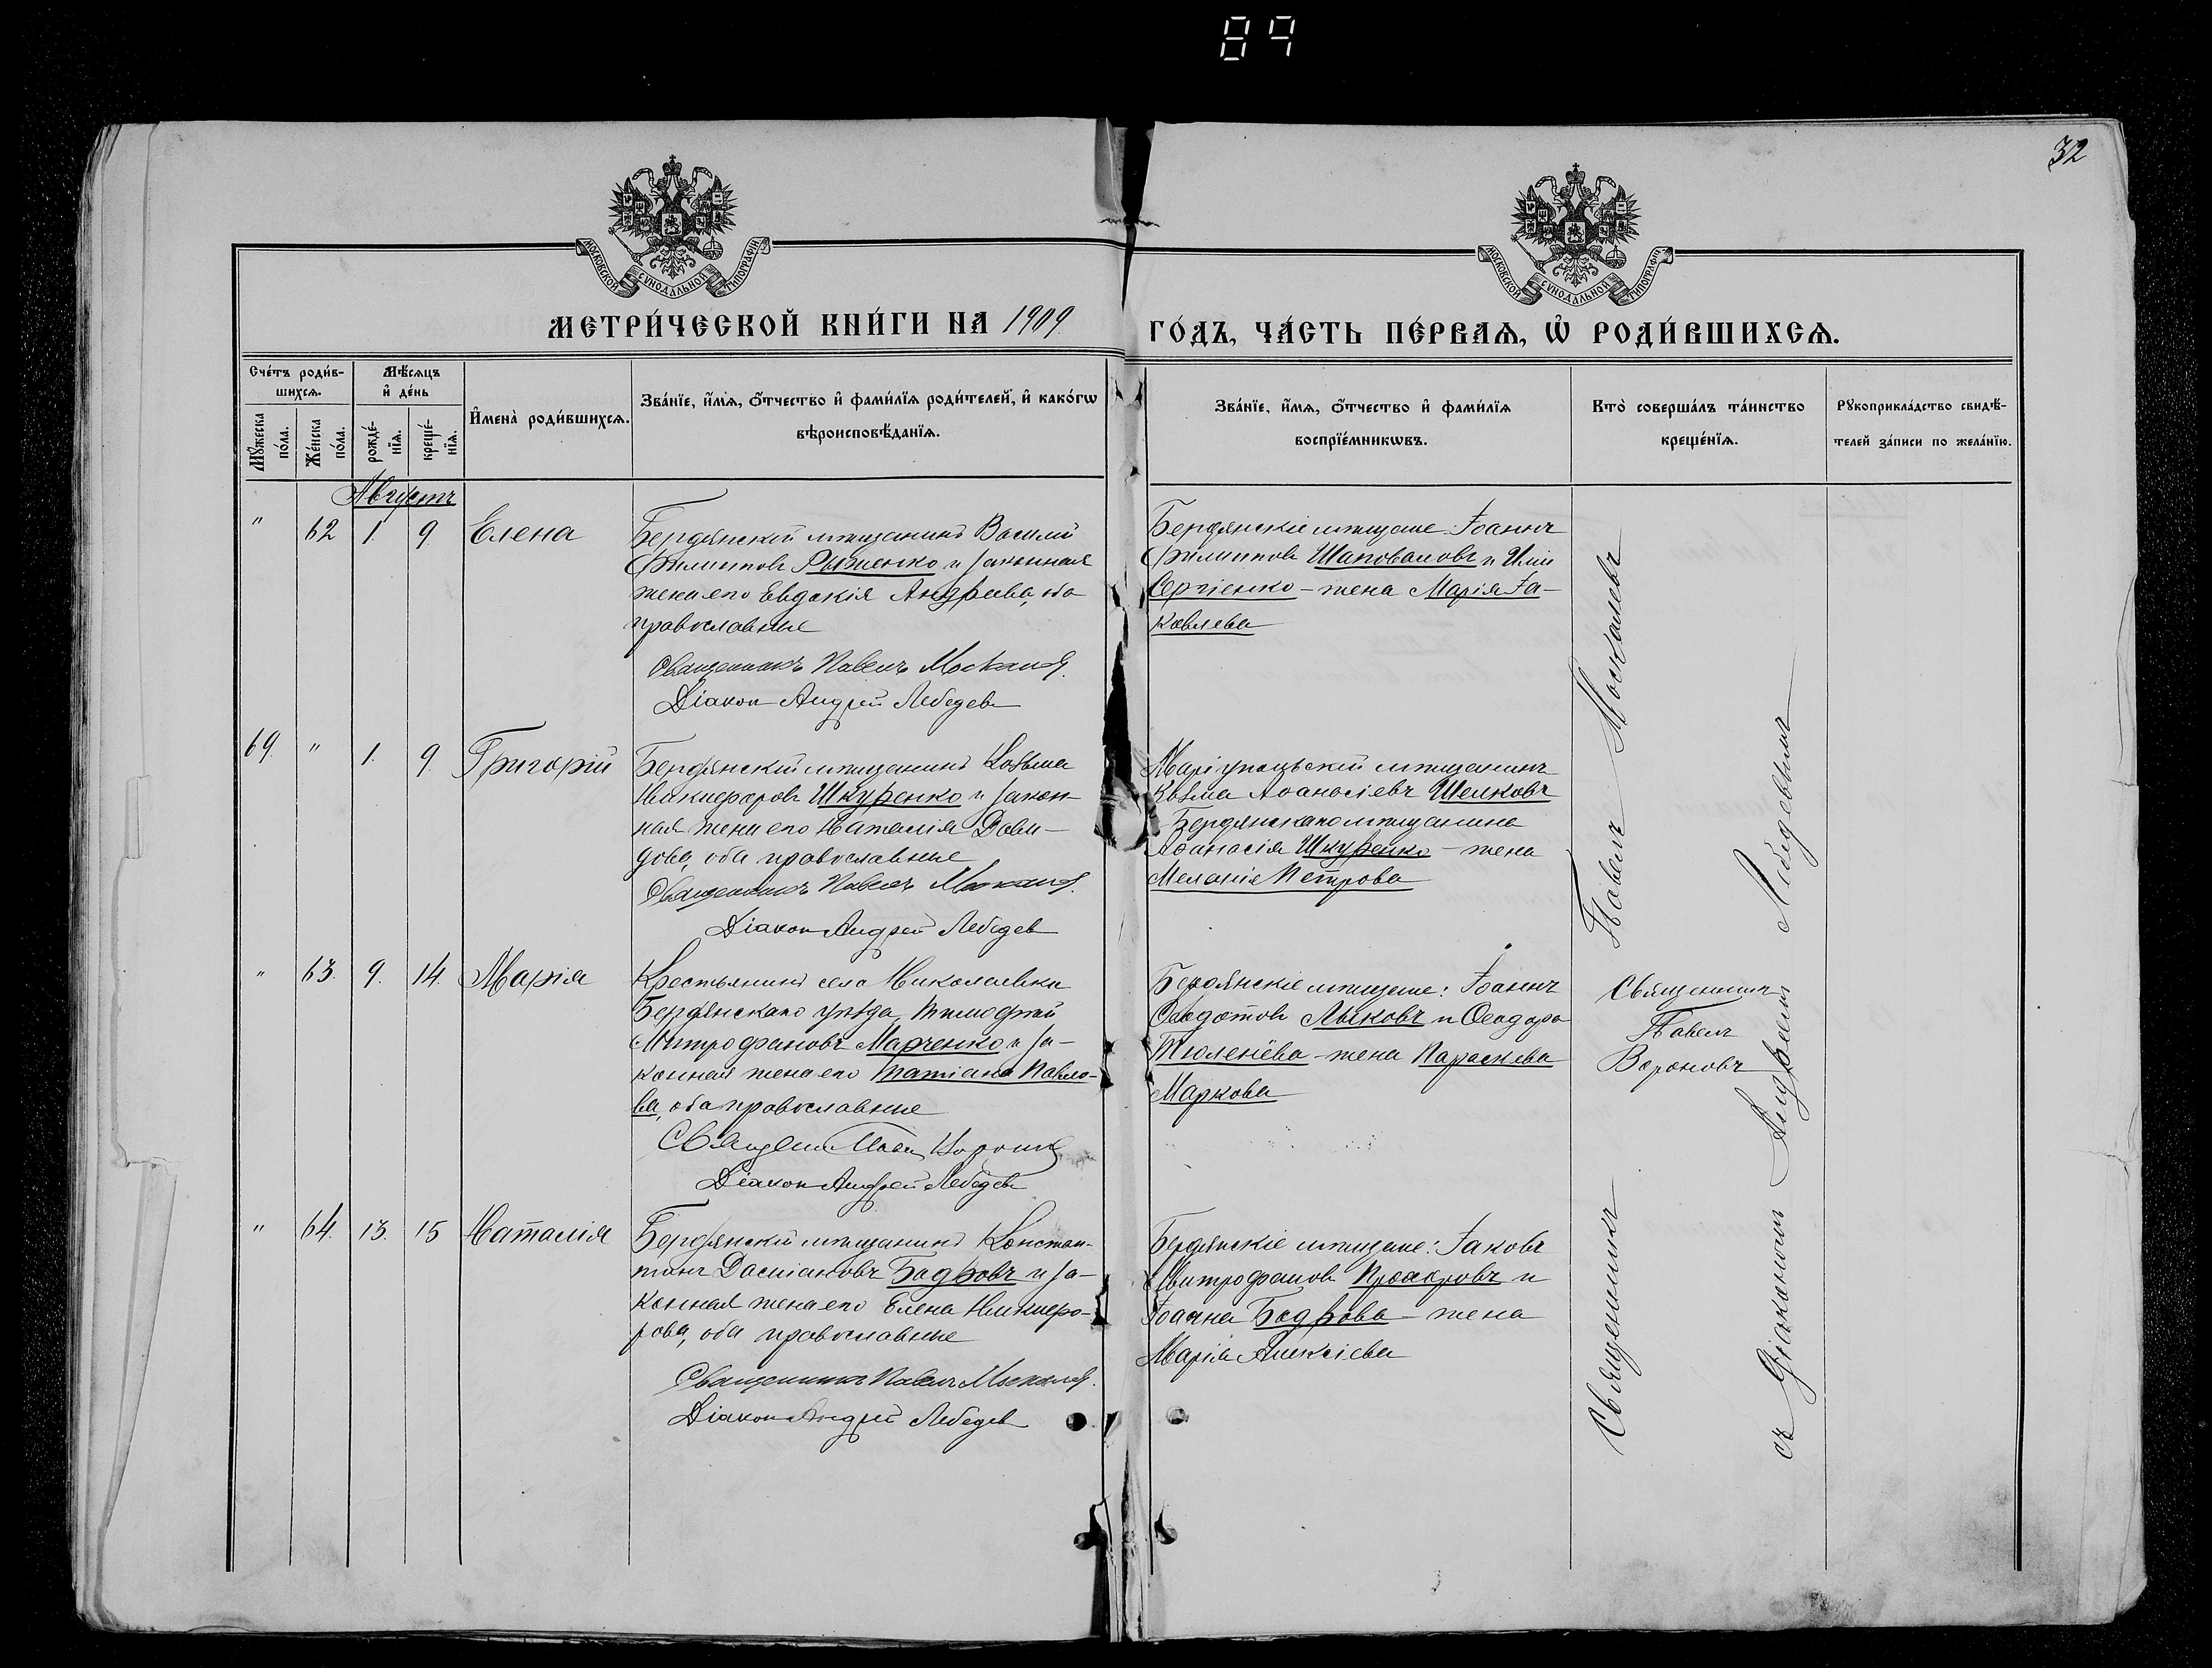 89
32
МОСКОВСКОЙ СУНОДАЛЬНОЙ ТИПОГРАФІИ
МОСКОВСКОЙ СУНОДАЛЬНОЙ ТИПОГРАФІИ
МЕТРИ́ЧЕСКОЙ КНИ́ГИ НА 1909
ГО́ДЪ, ЧА́СТЬ ПЕ́РВАѦ, Ѡ҆ РОДИ́ВШИХСѦ.
Сче́тъ роди́в-
шихсѧ.
Мꙋ́жеска
по́ла.
Же́нска
по́ла.
Мѣ́сѧцъ
и҆ де́нь
рожде́-
нїѧ.
креще́-
нїѧ.
И҆мена̀ роди́вшихсѧ.
Зва́нїе, и҆́мѧ, ѻ҆́тчество и҆ фами́лїѧ роди́телей, и҆ како́гѡ
вѣроисповѣ́данїѧ.
Зва́нїе, и҆́мѧ, ѻ҆́тчество и҆ фами́лїѧ
воспрїе́мникѡвъ.
Кто̀ соверша́лъ та́инство
креще́нїѧ.
Рꙋкоприкла́дство свидѣ́-
телей за́писи по жела́нїю.
Августъ
" 62 1. 9. Елена
Бердянскій мѣщанинъ Василій
Филиповъ Рыженко и законная
жена его Евдокія Андреева, оба
православные
Священникъ Павелъ Москалев
Діакон Андрей Лебедев
Бердянскіе мѣщане: Іоаннъ
Филипповъ Шаповаловъ и Иліи
Сергіенко - жена Марія Іа-
ковлева
69. " 1. 9. Григорій
Бердянскій мѣщанинъ Козьма
Никифоровъ Шкуренко и закон-
ная жена его Наталія Дави-
дова, оба православные
Священникъ Павелъ Москалев
Діакон Андрей Лебедев
Маріупольскій мѣщанинъ
Козьма Аѳанасіевъ Шелковъ
Бердянскаго мѣщанина
Аѳанасія Шкуренко - жена
Меланія Петрова
" 63. 9. 14. Марія
Крестьянинъ села Николаевки
Бердянскаго уѣзда Тимоѳей
Митрофановъ Марченко и за-
конная жена его Татіана Павло-
ва, оба православные
Діакон Андрей Лебедев
Бердянскіе мѣщане: Іоаннъ
Ѳеодотовъ Лыковъ и Ѳеодора
Тюленева - жена Параскева
Маркова
Священникъ
Павелъ
Вороновъ
" 64. 13. 15 Наталія
Бердянскій мѣщанинъ Констан-
тинъ Даміановъ Бодровъ и за-
конная жена его Елена Никифо-
рова, оба православные
Священникъ Павелъ Москалев
Діакон Андрей Лебедев
Бердянскіе мѣщане: Іаковъ
Митрофановъ и
Іоанна Бодрова - жена
Марія Алексіева
Священникъ Павелъ Москалевъ
съ діакономъ Андреемъ Лебедевымъ